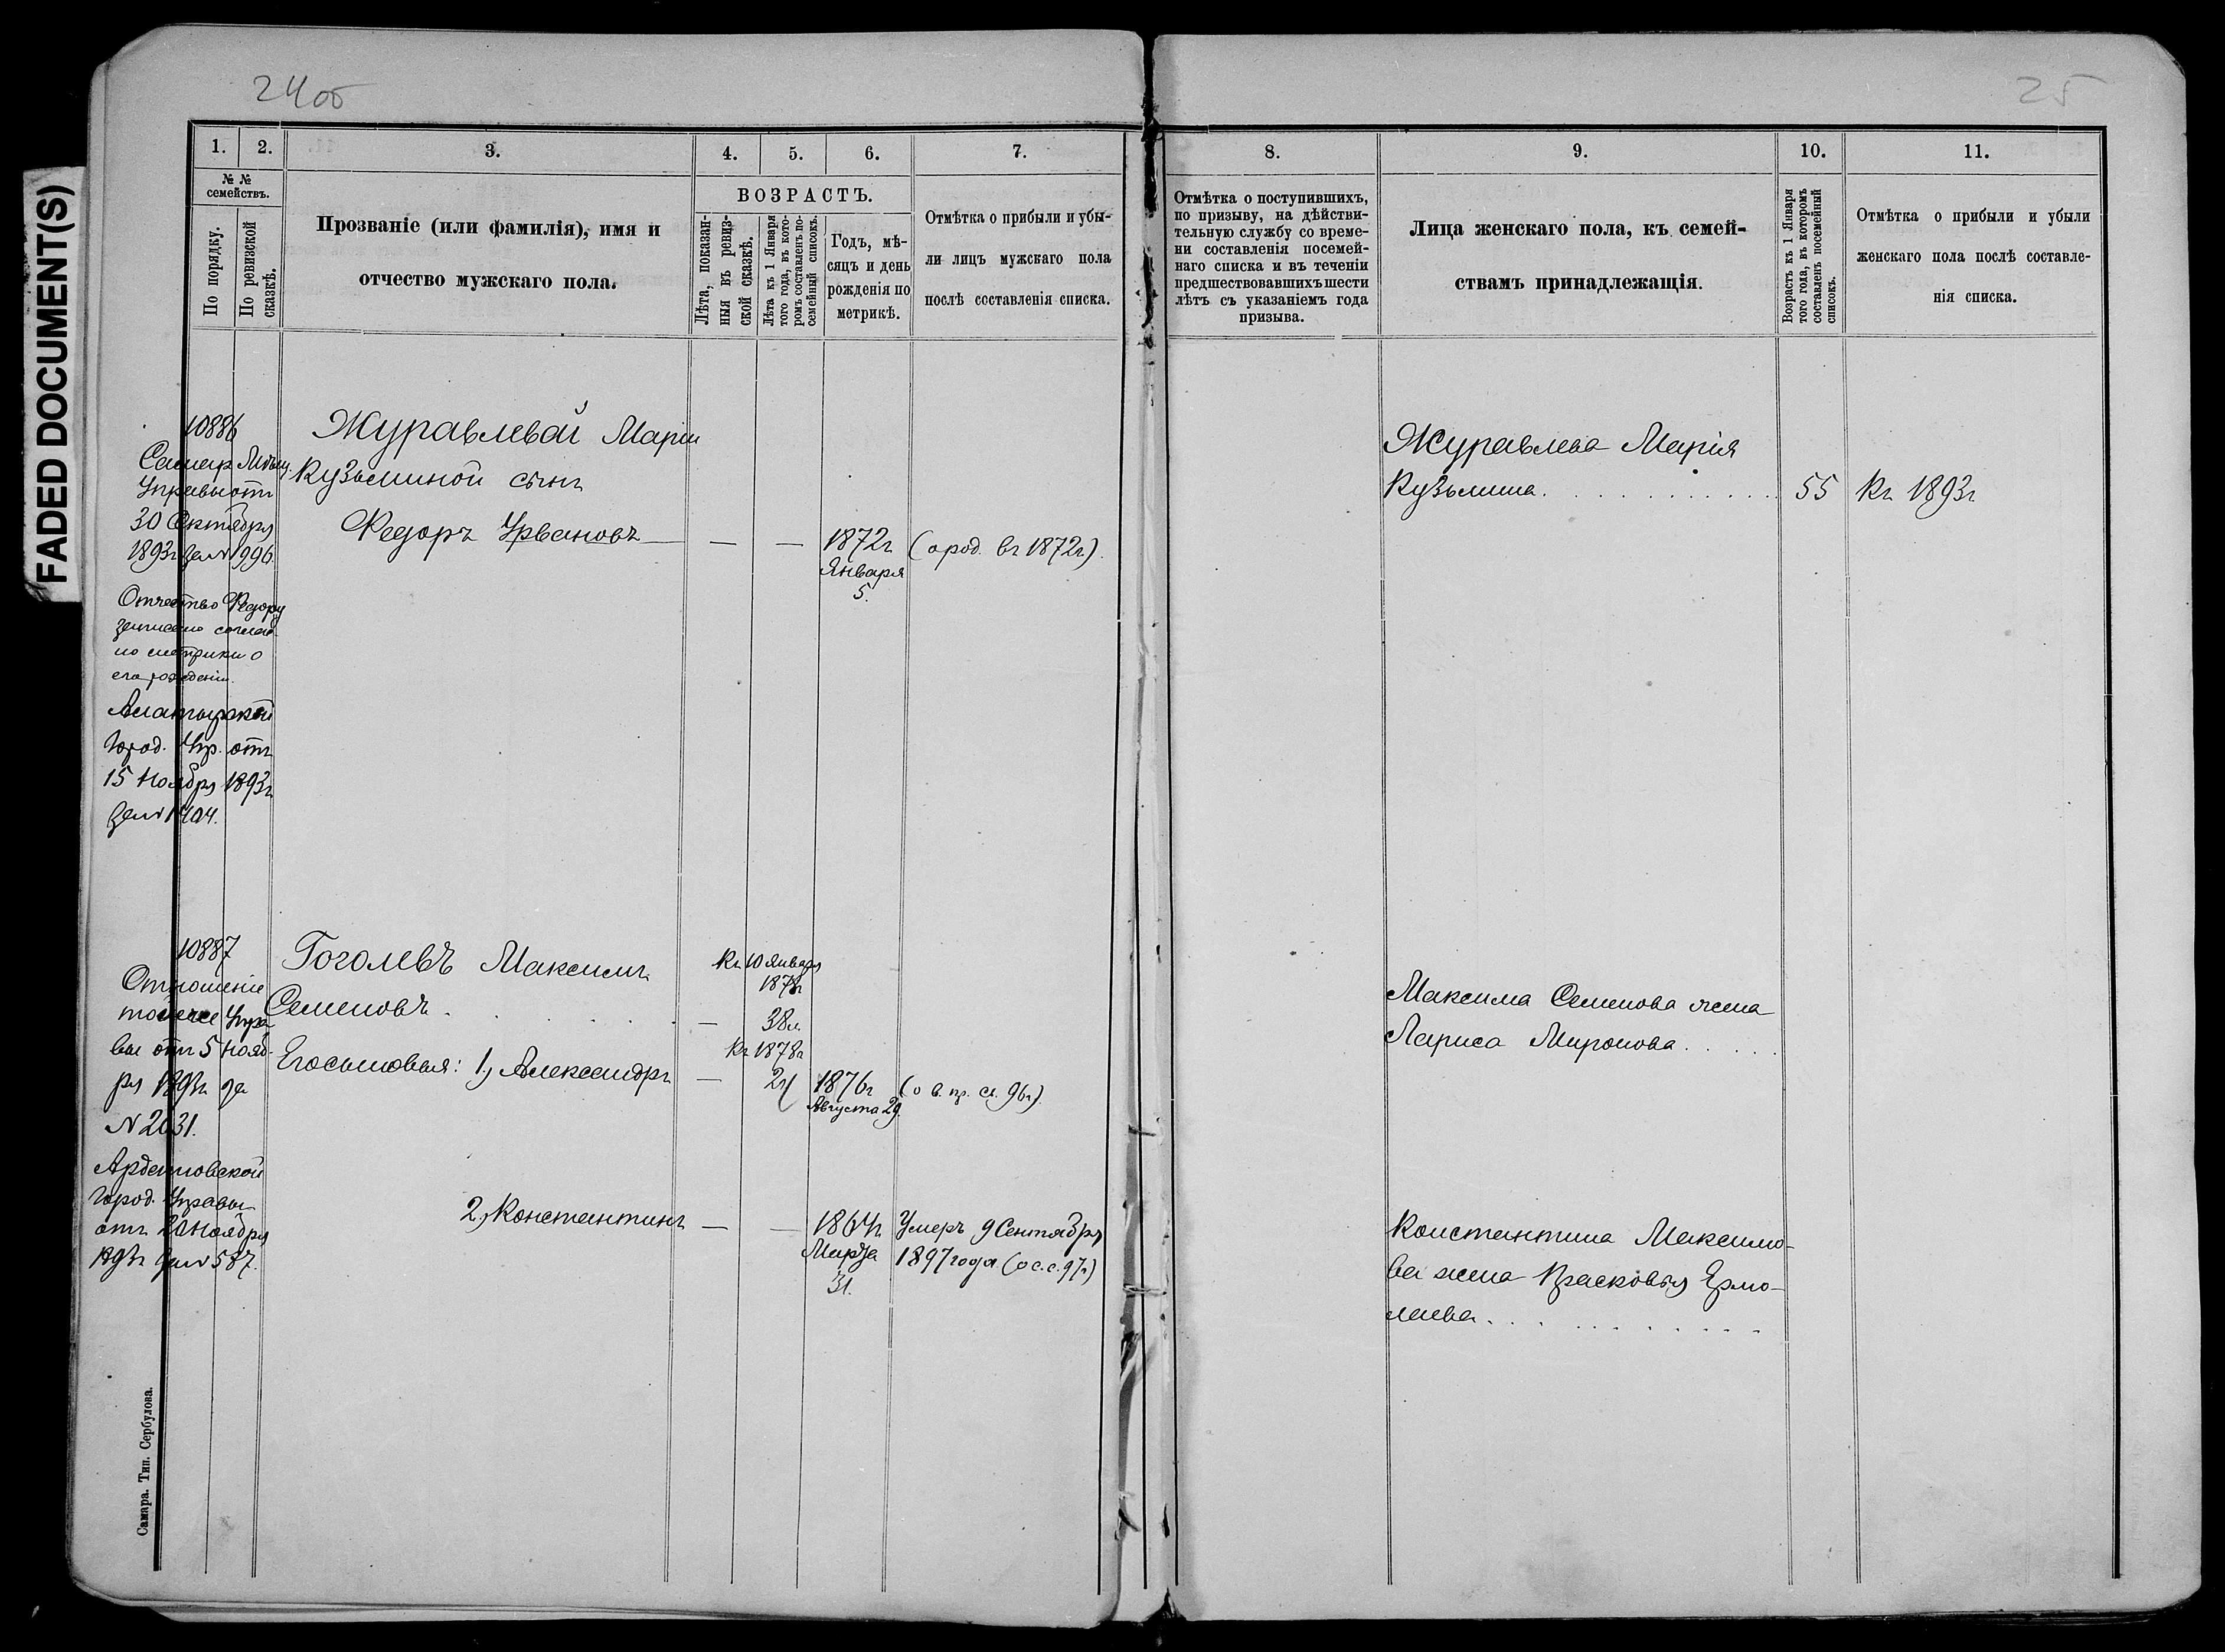 FADED DOCUMENT(S)
24об
25
1.
2.
3.
4.
5.
6.
7.
8.
9.
10.
11.
№ №
семействъ.
По порядку.
По ревизской
сказкѣ.
Прозваніе (или фамилія), имя и
отчество мужскаго пола.
ВОЗРАСТЪ.
Лѣта, показан-
ныя въ ревиз-
ской сказкѣ.
Лѣта къ 1 Января
того года, въ кото-
ромъ составленъ по-
семейный списокъ.
Годъ, мѣ-
сяцъ и день
рожденія по
метрикѣ.
Отмѣтка о прибыли и убы-
ли лицъ мужскаго пола
послѣ составленія списка.
Отмѣтка о поступившихъ,
по призыву, на дѣйстви-
тельную службу со време-
ни составленія посемей-
наго списка и въ теченіи
предшествовавшихъ шести
лѣтъ съ указаніемъ года
призыва.
Лица женскаго пола, къ семей-
ствамъ принадлежащія.
Возрастъ къ 1 Января
того года, въ которомъ
составленъ посемейный
списокъ.
Отмѣтка о прибыли и убыли
женскаго пола послѣ составле-
нія списка.
10886
Самар. Мѣщ.
Управы отъ
30 Октября
1893г за № 1996.
Отчество Федору
записано соглас-
но метрики о
его рожденіи.
Алатырской
Город. Упр. отъ
15 Ноября 1893г
за № 1404.
Журавлевой Маріи
Кузьминой сынъ
Федоръ Урвановъ — — —
1872г
Января
5.
(о род. въ 1872г).
Журавлева Марія
Кузьмина. . . . . . . . . . .
55
Къ 1893г
10887
Отношеніе
той же Упра
вы отъ 5 Нояб-
ря 1893г за
№ 2031.
Ардатовской
Город. Управы
отъ 20 Ноября
1893г за № 587.
Гоголевъ Максимъ
Семеновъ . . . . . —
Къ 10 Января
1878г
38л.
Его сыновья: 1, Александръ —
Къ 1878г
2 1/
1876г
Августа 29.
(о в. пр. сп. 96г).
2, Константинъ — —
1864г
Марта
31.
Умеръ 9 Сентября
1897 года (о с. с. 97г)
Максима Семенова жена
Лариса Миронова . . . . .
Константина Максимо-
ва жена Прасковья Ермо-
лаева. . . . . . . . . . .
Самара. Тип. Сербулова.